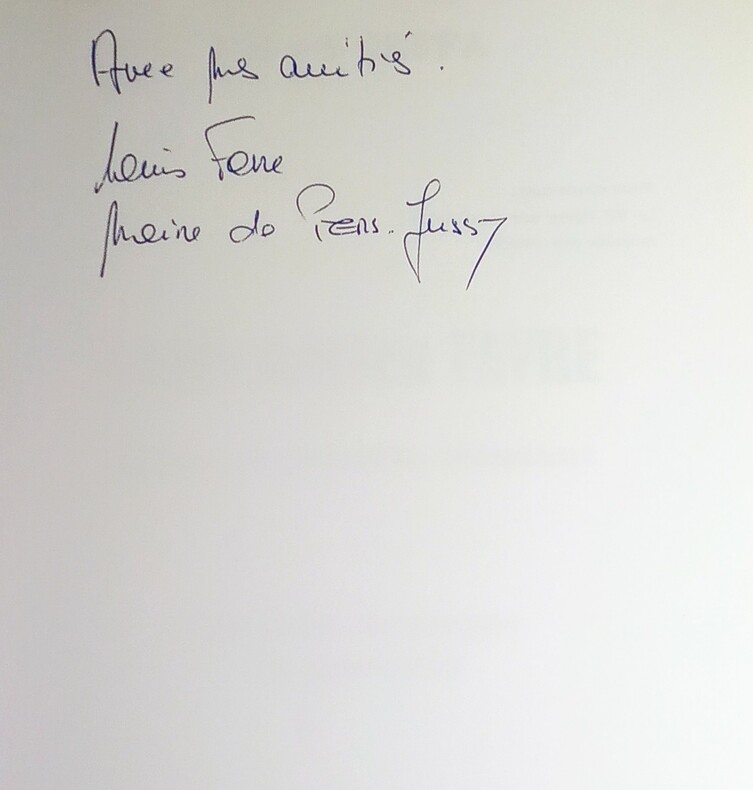 Avec mes amitiés.
Louis Favre
Maire de Pers-Jussy